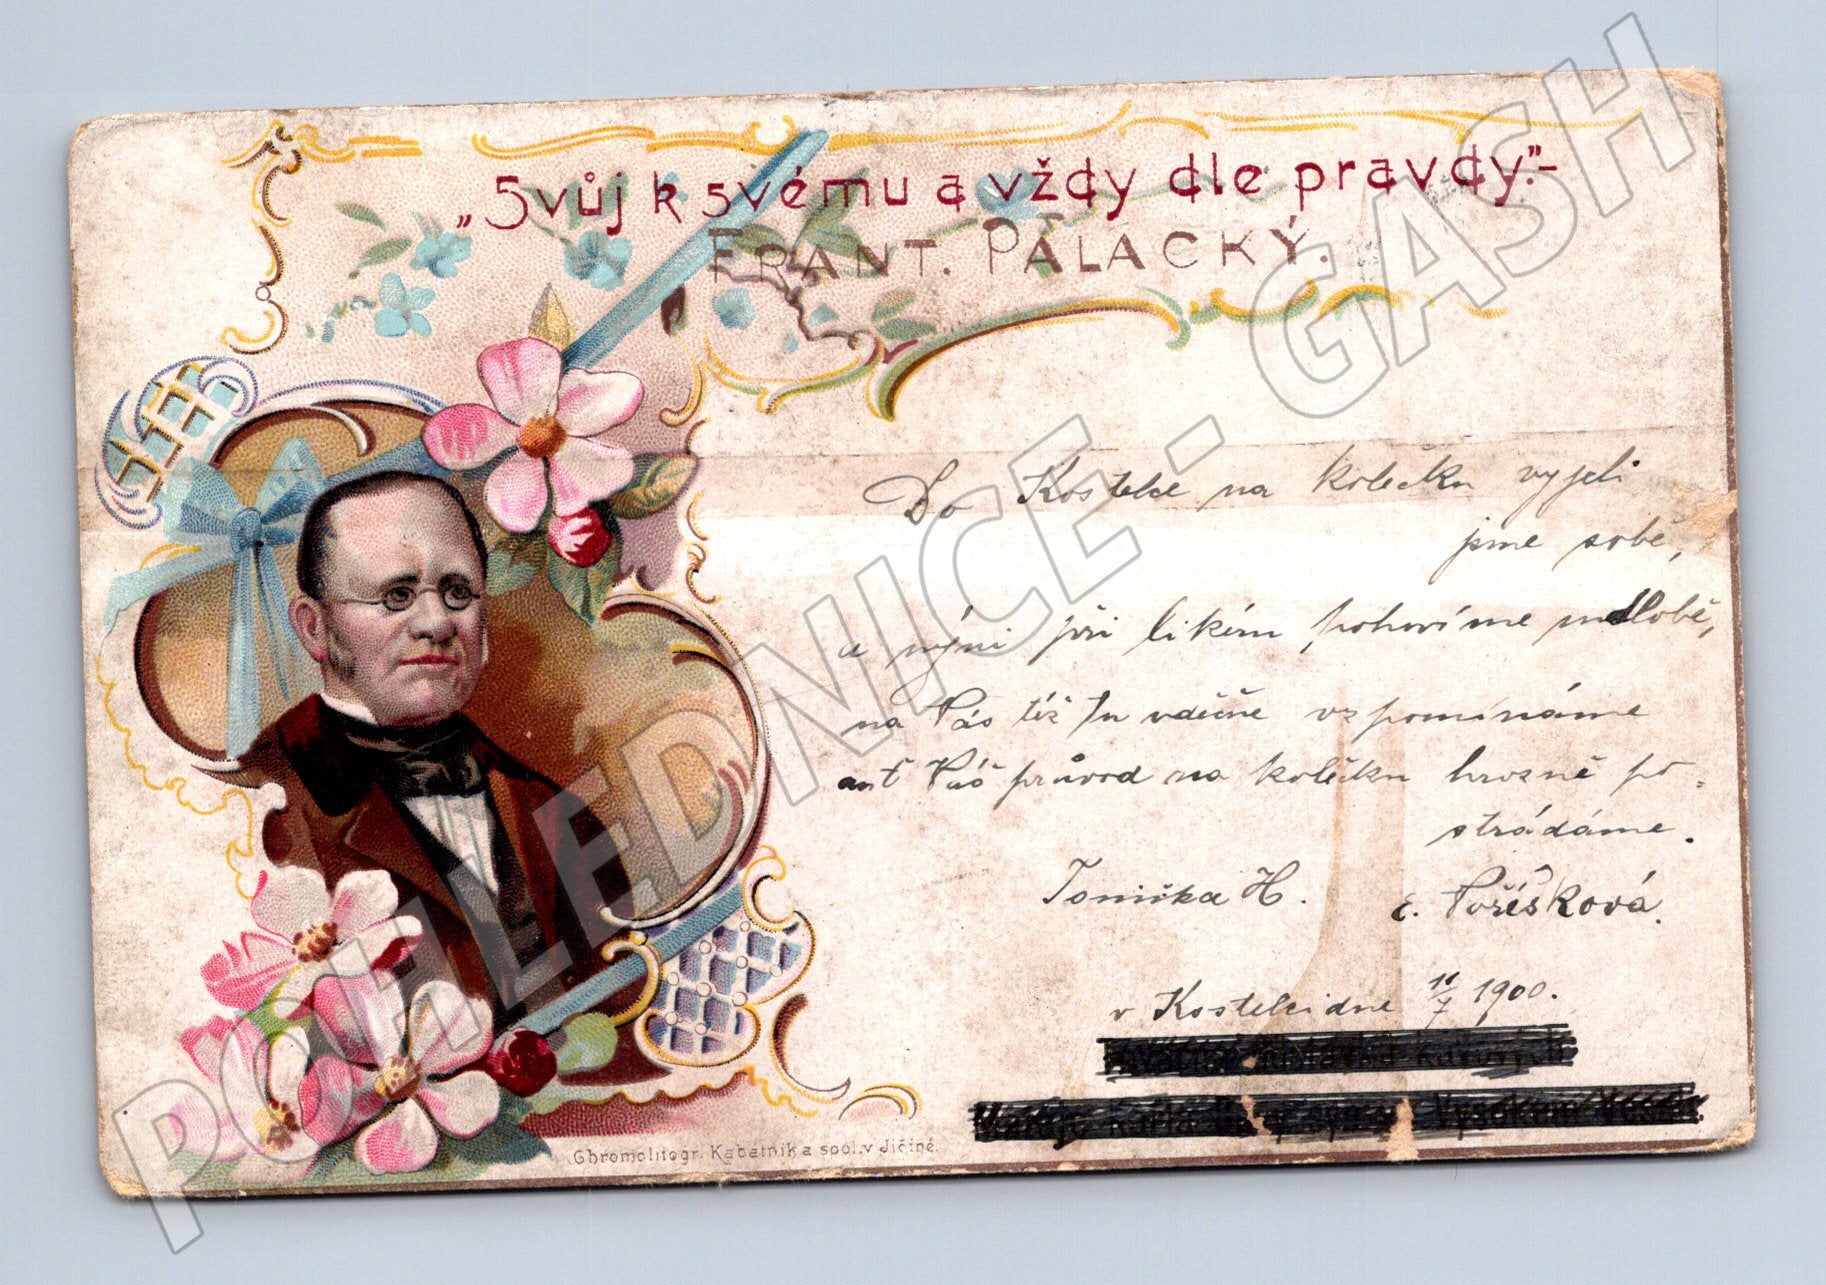 „Svůj k svému a vždy dle pravdy."-
FRANT. PALACKÝ.
Do Kostelce na kolečku vyjeli
jsme sobě,
a nyní při pohovíme mdlobě,
na Vás též tu vděčně vzpomínáme
ant Váš průvod na kolečku hrozně po-
strádáme.
Tonička H.
v Kostelci dne 11/7 1900.
Chromolitogr. Kabatnik a spol. v Jičíně.
POHLEDNICE - GASH